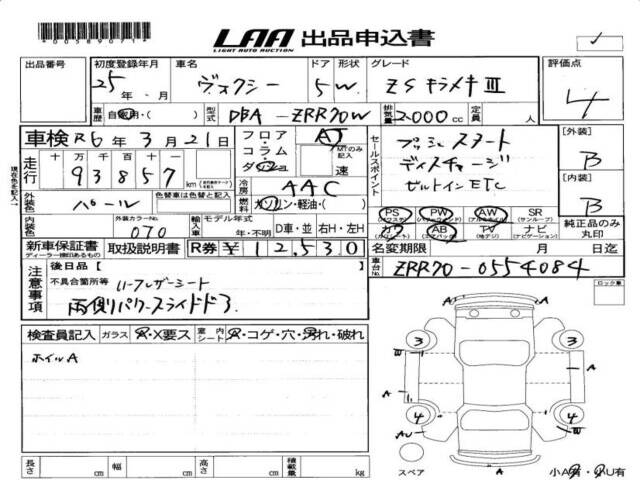 *0058907*
LAA 出品申込書
LIGHT AUTO AUCTION
出品番号 初度登録年月 車名 ドア 形状 グレード 評価点
25年・月 ヴォクシー 5 W ZS キラメキⅢ 4
車歴 自家用・( ) 型式 DBA-ZRR70W 排気量 2000cc 定員 人
車検 R6年3月21日 フロア・コラム・ダッシュ AT MTのみ記入 速
セールスポイント プッシュスタート
ディスチャージ
ビルトインETC
[外装] B
[内装] B
現在色を記入→
走行 十万千百十一 93857 km
冷房 AAC
外装色 パール 色替車は色替と記入
燃料 ガソリン・軽油・( )
PS PW AW SR (サンルーフ)
内装色 外装カラーNo. 070 輸入車 モデル年式 年・不明 D車・並 右H・左H
AB TV (地デジ) ナビ (ナビゲーション)
純正品のみ丸印
新車保証書 ディーラー捺印あるもの 取扱説明書 R券 ¥12,530
名変期限 月 日迄
車台No. ZRR70-0554084
注意事項 後日品[ ]
不具合箇所等 ハーフレザーシート
両側パワースライドドア
ロック車
検査員記入 ガラス A・X要ス 室内シート A・コゲ・穴・汚れ・破れ
ホイルA
3 3
A A
4 4
AU
A
長さ cm 幅 cm 高さ cm 積載量 kg
スペア 小A有・小U有